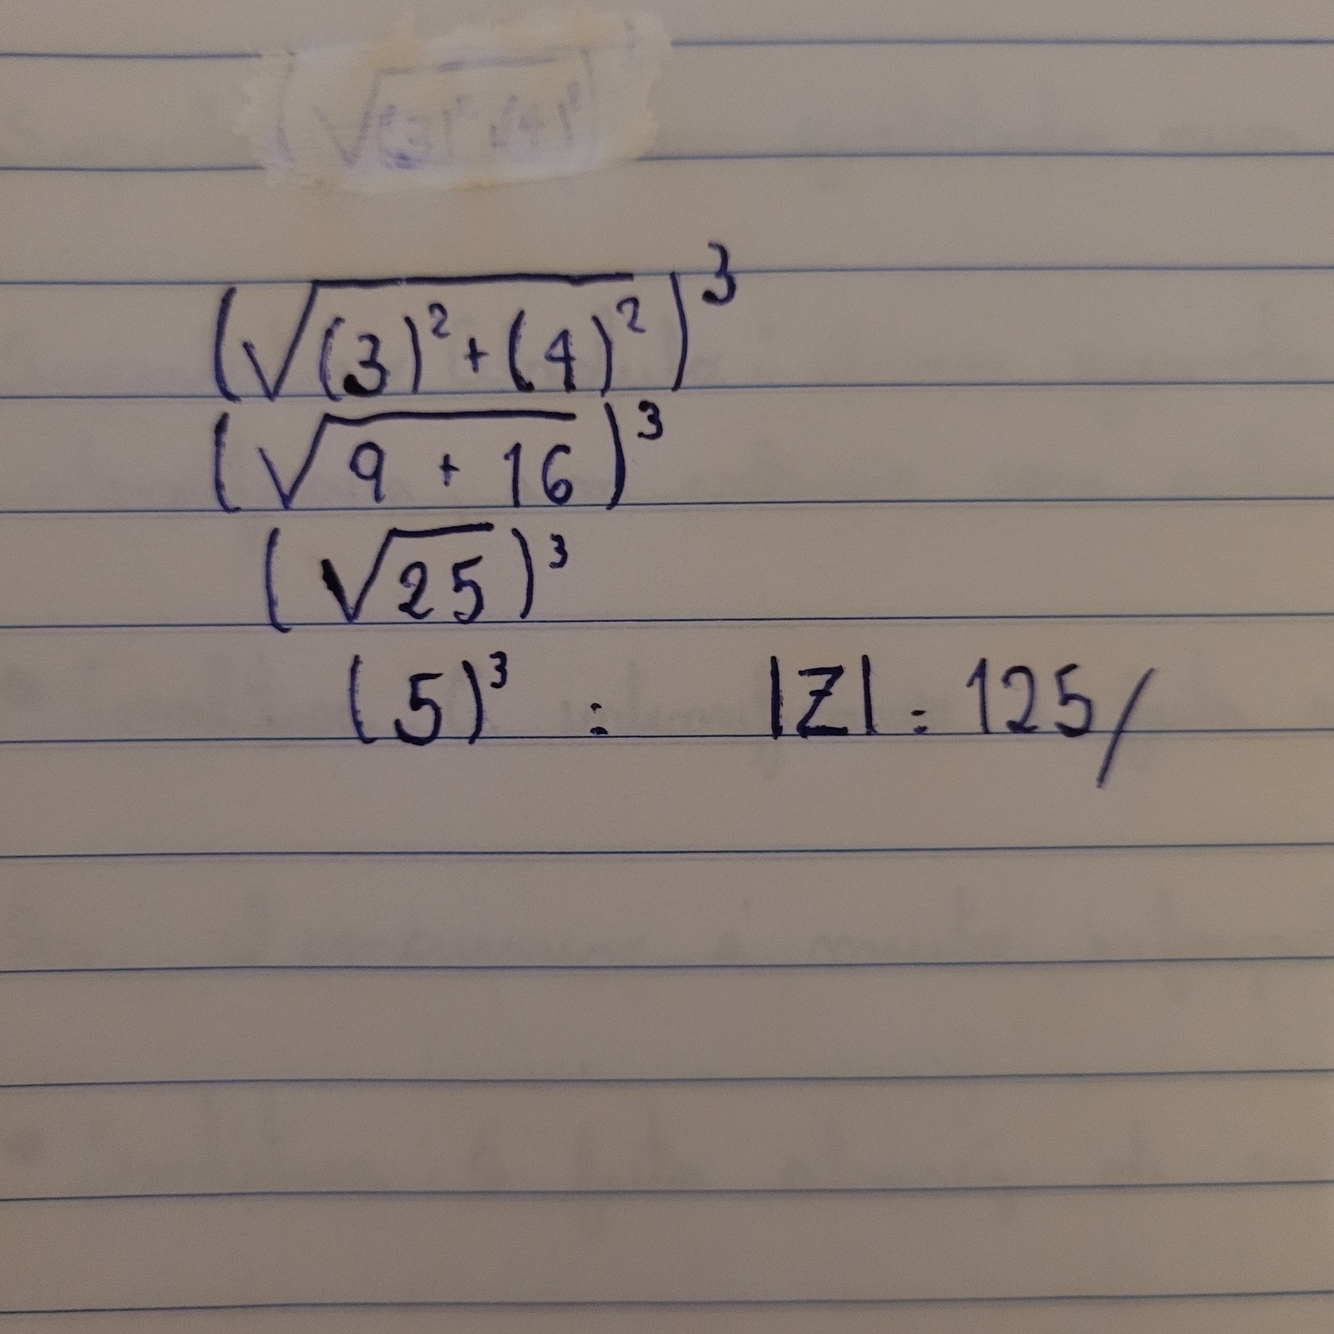 (√(3)² + (4)²)³
(√9 + 16)³
(√25)³
(5)³ = |Z| = 125/